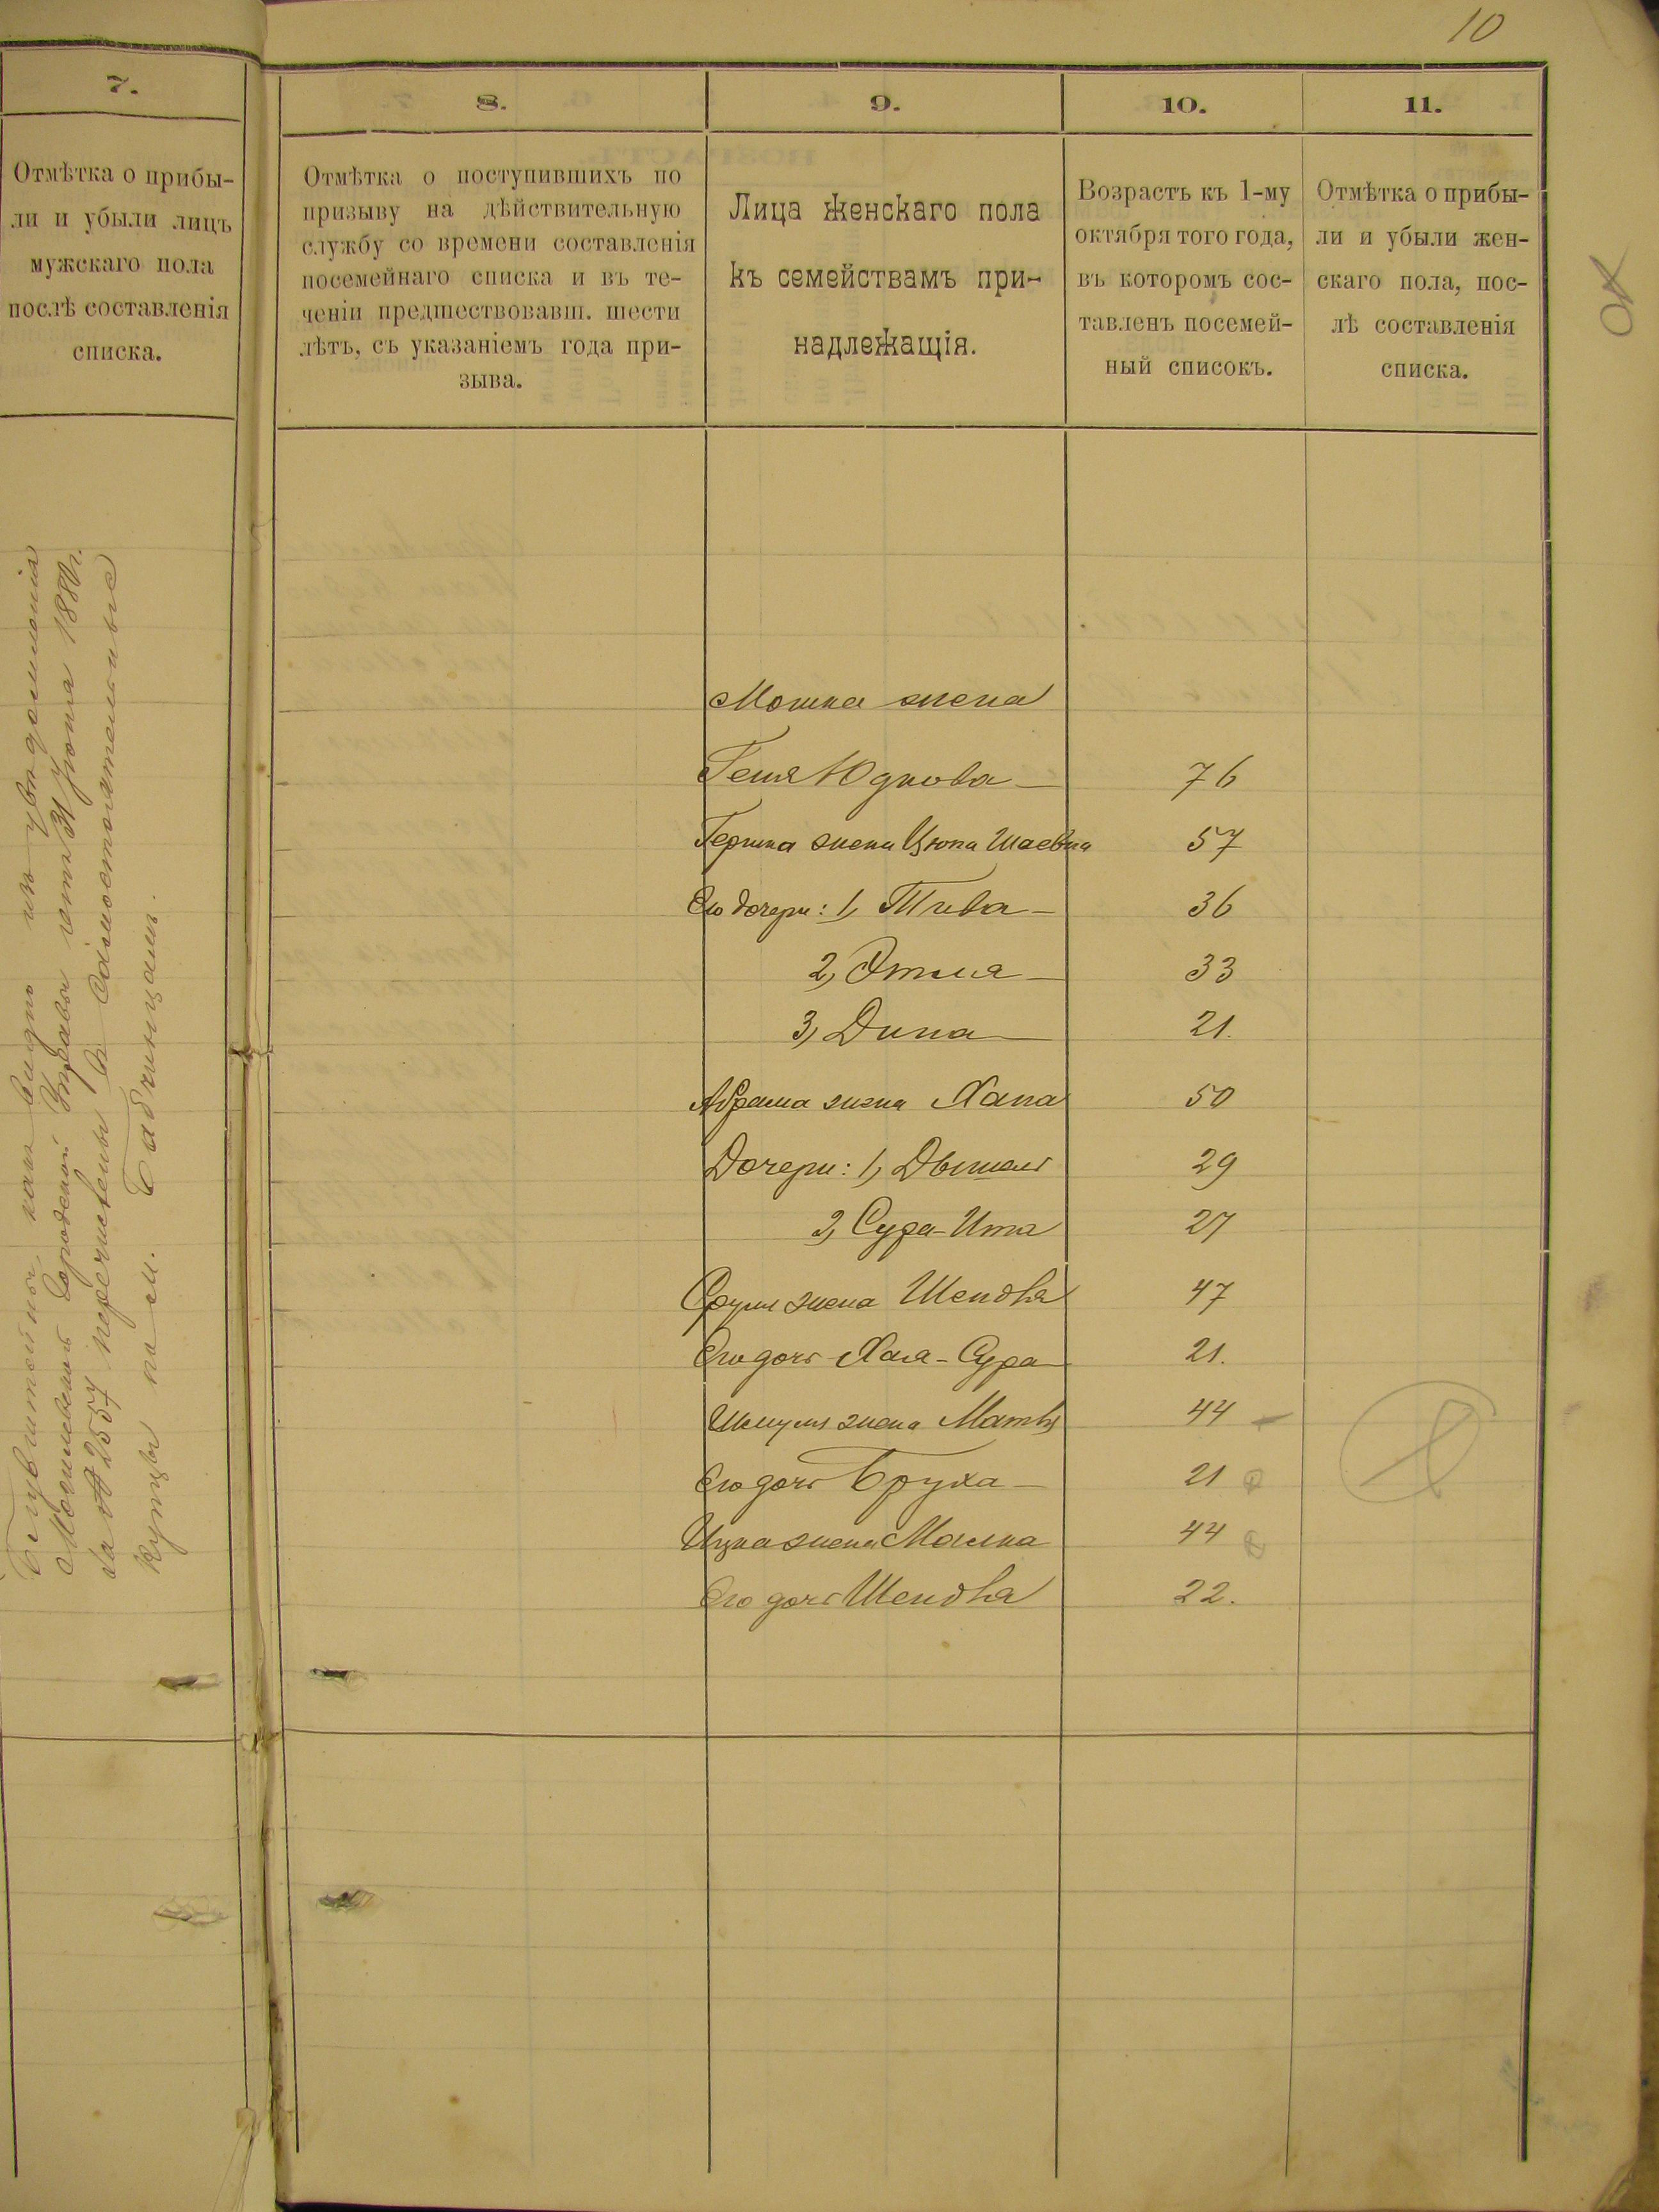 10
7.
Отмѣтка о прибы-
ли и убыли лицъ
мужскаго пола
послѣ составленія
списка.
8.
Отмѣтка о поступившихъ по
призыву на дѣйствительную
службу со времени составленія
посемейнаго списка и въ те-
ченіи предшествовавш. шести
лѣтъ, съ указаніемъ года при-
зыва.
9.
Лица женскаго пола
къ семействамъ при-
надлежащія.
10.
Возрастъ къ 1-му
октября того года,
въ которомъ сос-
тавленъ посемей-
ный списокъ.
11.
Отмѣтка о прибы-
ли и убыли жен-
скаго пола, пос-
лѣ составленія
списка.
какъ видно изъ увѣдомленія
Могилевской Городской Управы отъ 31 1880 г.
за № 2557 перечислены въ самостоятельные
купцы по м.
Мошка жена
Геня Юдкова 76
Гершка жена Цюпа Шаевна 57
Его дочери: 1, Тива 36
2, Этля 33
3, Дина 21.
Абрама жена Хана 50
Дочери: 1, Двишель 29
2, Сура-Ита 27
Сруля жена Шендля 47
Его дочь Хая-Сура 21.
Шмуля жена Матля 44
Его дочь Бруха 21
Ицка жена Малка 44
Его дочь Шендля 22.